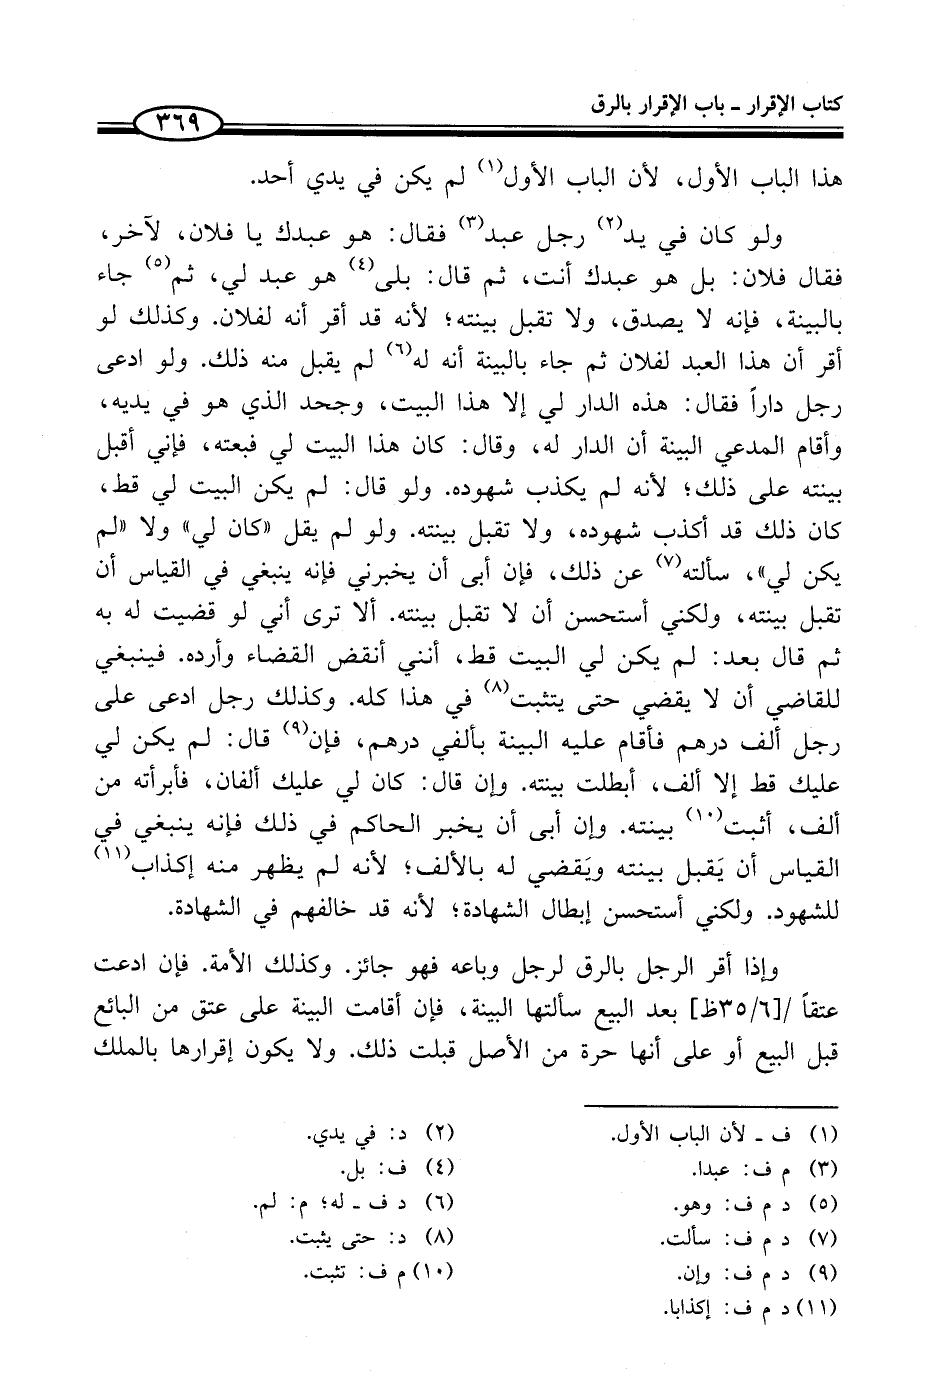 كتاب الإقرار - باب الإقرار بالرق
٣٦٩
هذا الباب الأول، لأن الباب الأول(١) لم يكن في يدي أحد.
ولو كان في يد(٢) رجل عبد(٣) فقال: هو عبدك يا فلان، لآخر،
فقال فلان: بل هو عبدك أنت، ثم قال: بلى(٤) هو عبد لي، ثم(٥) جاء
بالبينة، فإنه لا يصدق، ولا تقبل بينته؛ لأنه قد أقر أنه لفلان. وكذلك لو
أقر أن هذا العبد لفلان ثم جاء بالبينة أنه له(٦) لم يقبل منه ذلك. ولو ادعى
رجل داراً فقال: هذه الدار لي إلا هذا البيت، وجحد الذي هو في يديه،
وأقام المدعي البينة أن الدار له، وقال: كان هذا البيت لي فبعته، فإني أقبل
بينته على ذلك؛ لأنه لم يكذب شهوده. ولو قال: لم يكن البيت لي قط،
كان ذلك قد أكذب شهوده، ولا تقبل بينته. ولو لم يقل «كان لي» ولا «لم
يكن لي»، سألته(٧) عن ذلك، فإن أبى أن يخبرني فإنه ينبغي في القياس أن
تقبل بينته، ولكني أستحسن أن لا تقبل بينته. ألا ترى أني لو قضيت له به
ثم قال بعد: لم يكن لي البيت قط، أنني أنقض القضاء وأرده. فينبغي
للقاضي أن لا يقضي حتى يتثبت(٨) في هذا كله. وكذلك رجل ادعى على
رجل ألف درهم فأقام عليه البينة بألفي درهم، فإن(٩) قال: لم يكن لي
عليك قط إلا ألف، أبطلت بينته. وإن قال: كان لي عليك ألفان، فأبرأته من
ألف، أثبت(١٠) بينته. وإن أبى أن يخبر الحاكم في ذلك فإنه ينبغي في
القياس أن يَقبل بينته ويَقضي له بالألف؛ لأنه لم يظهر منه إكذاب(١١)
للشهود. ولكني أستحسن إبطال الشهادة؛ لأنه قد خالفهم في الشهادة.
وإذا أقر الرجل بالرق لرجل وباعه فهو جائز. وكذلك الأمة. فإن ادعت
عتقاً /[٣٥/٦ظ] بعد البيع سألتها البينة، فإن أقامت البينة على عتق من البائع
قبل البيع أو على أنها حرة من الأصل قبلت ذلك. ولا يكون إقرارها بالملك
(١) ف ـ لأن الباب الأول.
(٢) د: في يدي.
(٣) م ف: عبدا.
(٤) ف: بل.
(٥) د م ف: وهو.
(٦) د ف ـ له؛ م: لم.
(٧) د م ف: سألت.
(٨) د: حتى يثبت.
(٩) د م ف: وإن.
(١٠) م ف: تثبت.
(١١) د م ف: إكذابا.